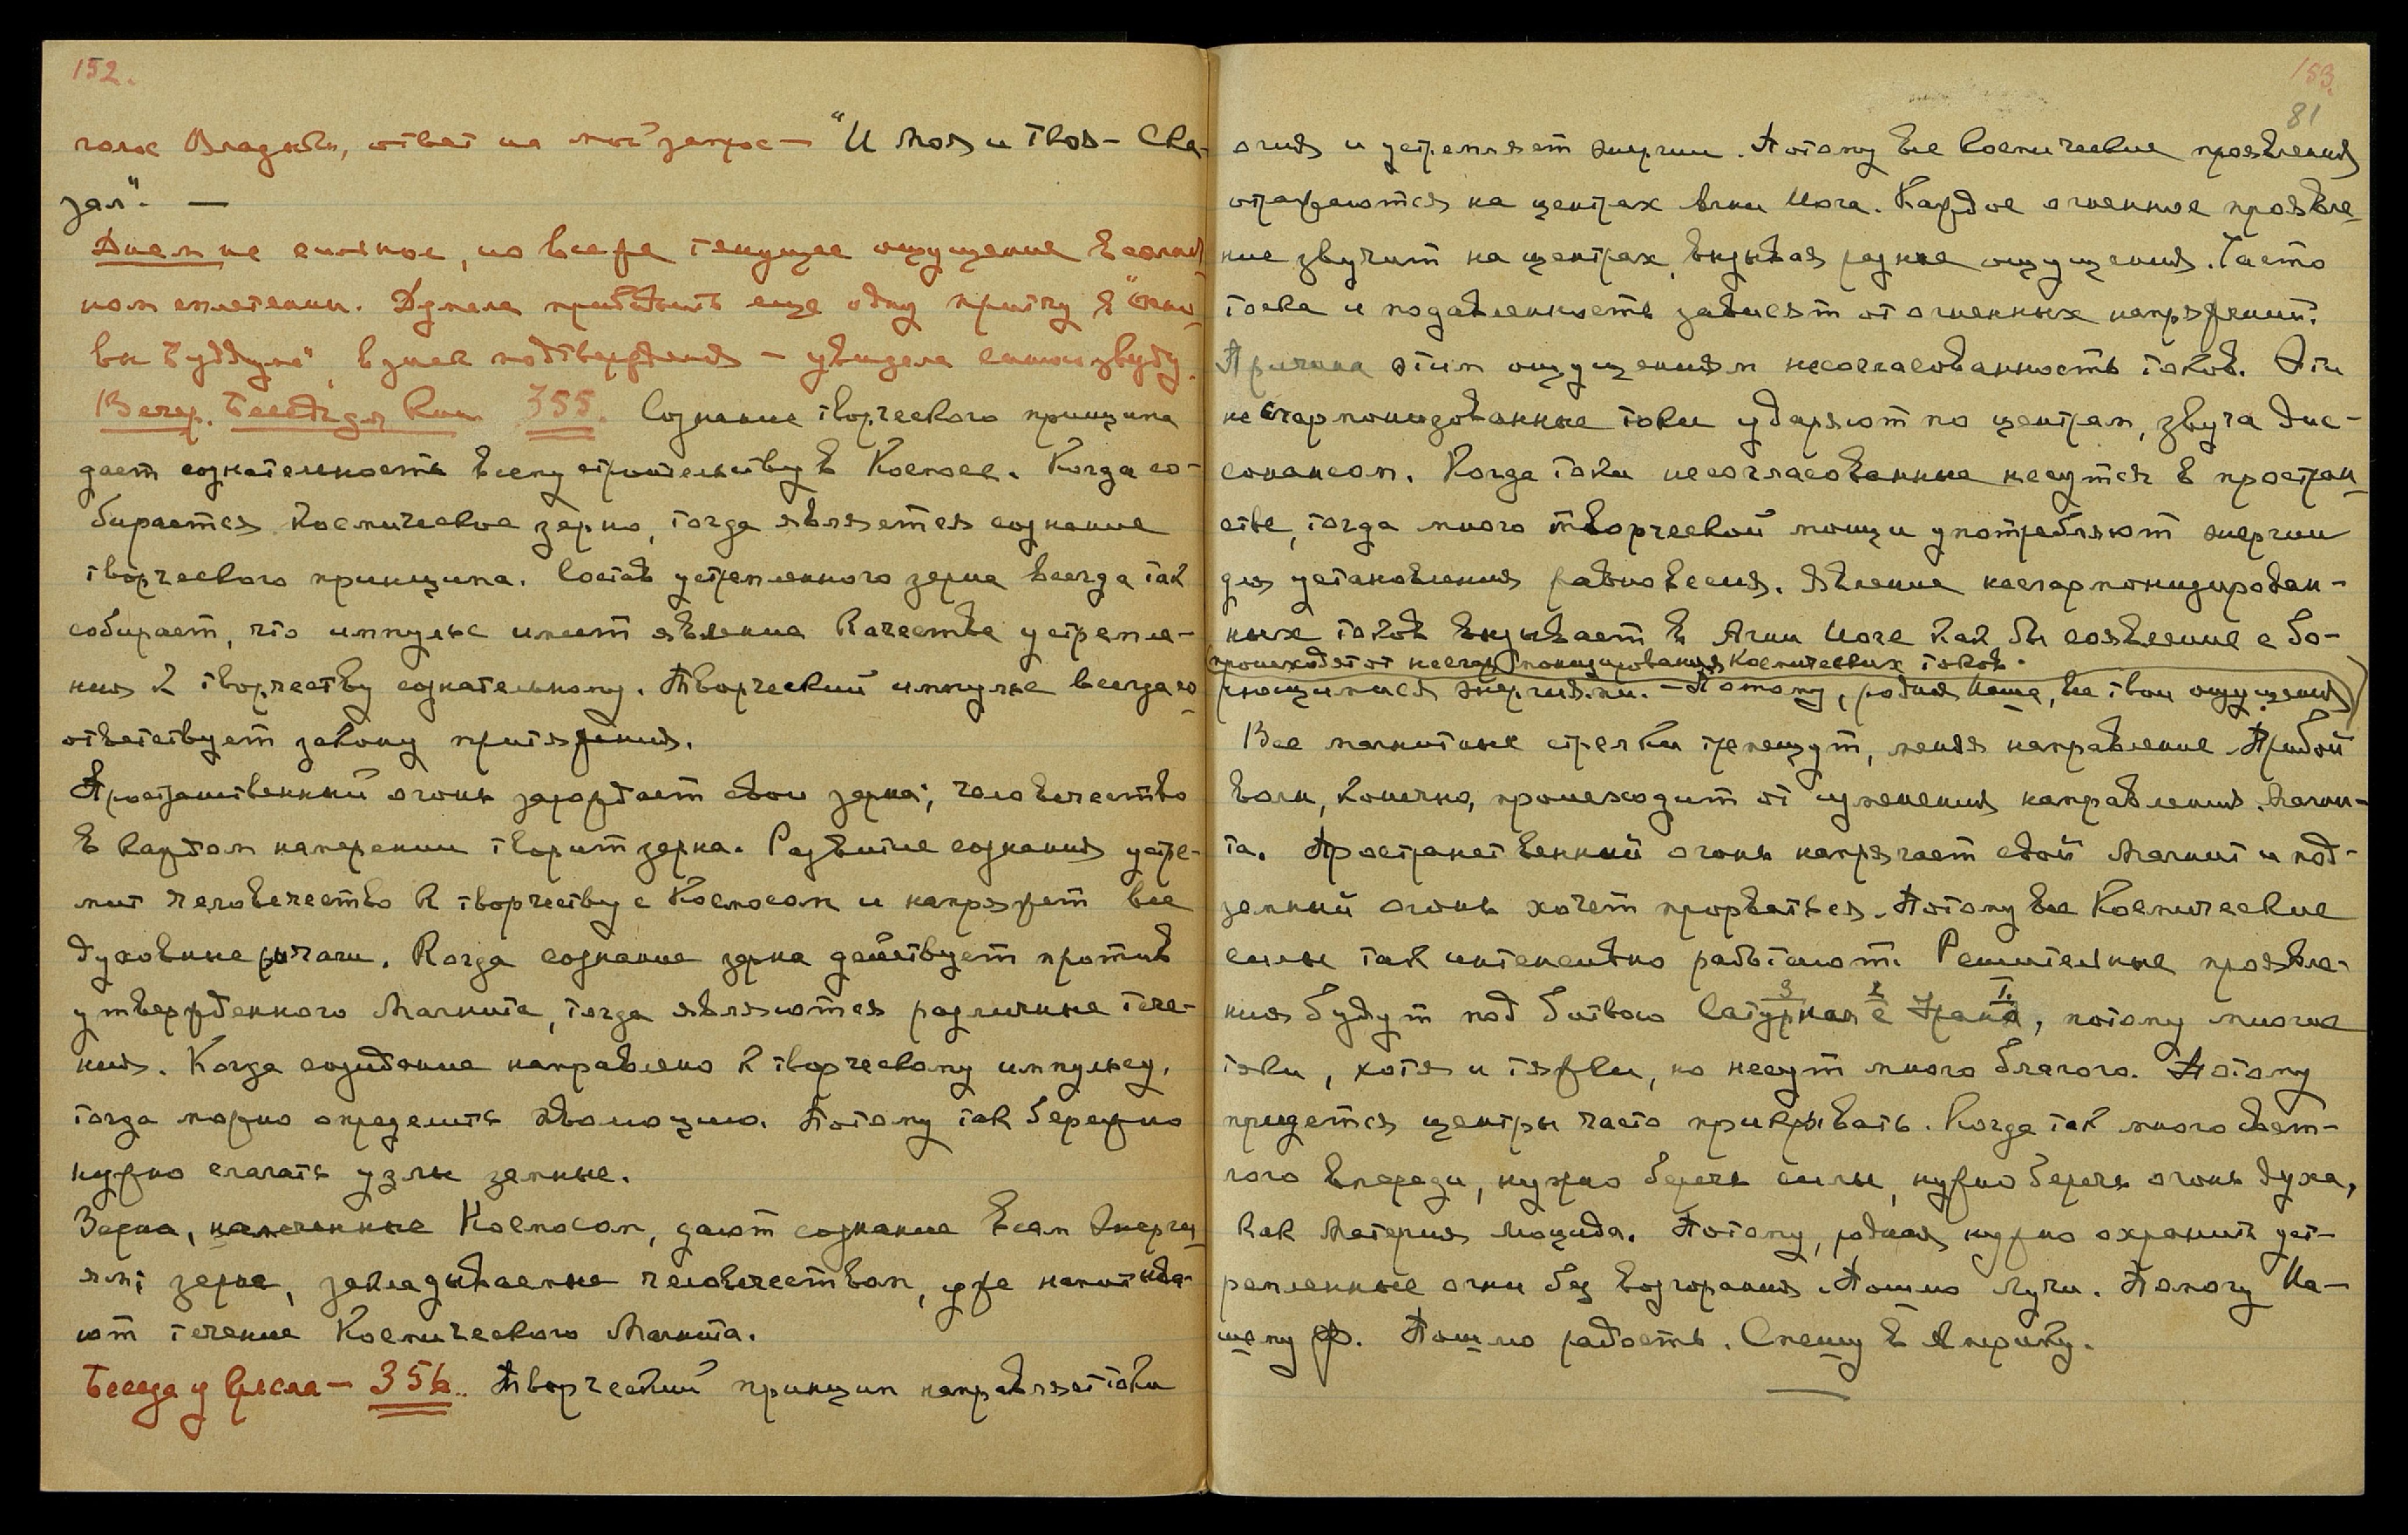 152.
голос Владыки, ответ на мой запрос — "И Моя и твоя — Ска-
зал". —
Днем не сильное, но все же текущее ощущение в солнеч-
ном сплетении. Думала прибавить еще одну притчу в "Осно-
вы Буддизма", в знак подтверждения — увидела синюю звезду.
Вечер. Беседа для Книги 355. Сознание творческого принципа
дает сознательность всему строительству в Космосе. Когда со-
бирается космическое зерно, тогда является сознание
творческого принципа. Состав устремленного зерна всегда так
собирает, что импульс имеет явление качества устремле-
ния к творчеству сознательному. Творческий импульс всегда со-
ответствует закону притяжения.
Пространственный огонь зарождает свои зерна; человечество
в каждом намерении творит зерна. Развитие сознания устре-
мит человечество к творчеству с Космосом и напряжет все
духовные рычаги. Когда сознание зерна действует против
утвержденного Магнита, тогда являются различные тече-
ния. Когда созидание направлено к творческому импульсу,
тогда можно определить эволюцию. Потому так бережно
нужно слагать узлы земные.
Зерна, намеченные Космосом, дают сознание всем Энерги-
ям; зерна, закладываемые человечеством, уже напитыва-
ют течение Космического Магнита.
Беседа у Кресла — 356. Творческий принцип направляет токи
153.
81
огня и устремляет энергии. Потому все космические проявления
отражаются на центрах Агни Йога. Каждое огненное проявле-
ние звучит на центрах, вызывая разные ощущения. Часто
тоска и подавленность зависят от огненных напряжений.
Причина этим ощущениям несогласованность токов. Эти
несгармонизованные токи ударяют по центрам, звуча дис-
сонансом. Когда токи несогласованные несутся в простран-
стве, тогда много творческой мощи употребляют энергии
для установления равновесия. Явление несгармонизирован-
ных токов вызывает в Агни Йоге как бы созвучание с бо-
происходят от несгармонизирования Космических токов.
рющимися энергиями. — Потому, родная Наша, все твои ощущения
Все магнитные стрелки трепещут, меняя направление. Прибой
волн, конечно, происходит от изменения направления Магни-
та. Пространственный огонь напрягает свой Магнит и под-
земный огонь хочет прорваться. Потому все Космические
силы так интенсивно работают. Решительные проявле-
3 2 1.
ния будут под битвою Сатурна с Урана, потому многие
токи, хотя и тяжки, но несут много благого. Потому
придется центры часто прикрывать. Когда так много свет-
лого впереди, нужно беречь силы, нужно беречь огонь духа,
как Материя Люцида. Потому, родная, нужно охранить уст-
ремленные огни без возгорания. Пошлю лучи. Помогу На-
шему Ф. Пошлю радость. Спешу в Америку.